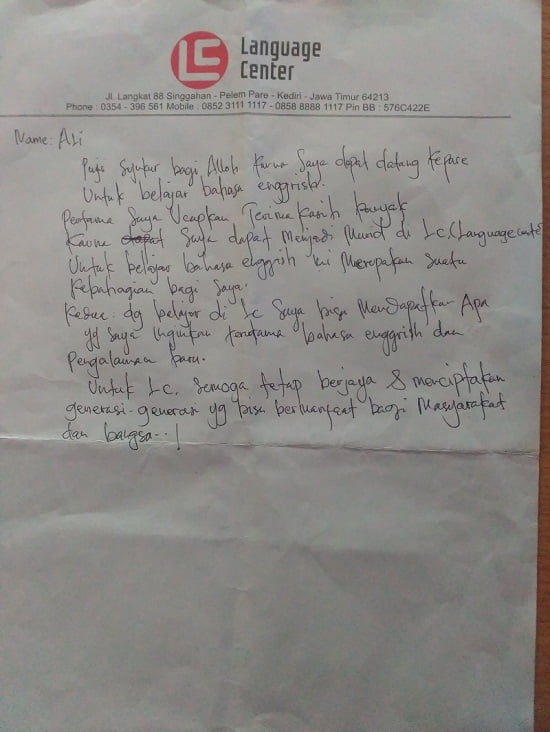 LC Language
Center
Jl. Langkat 88 Singgahan - Pelem Pare - Kediri - Jawa Timur 64213
Phone : 0354 - 396 561 Mobile : 0852 3111 1117 - 0858 8888 1117 Pin BB : 576C422E
Name: ALi
Puji Syukur bagi Alloh Karna Saya dapat datang Kepare
Untuk belajar bahasa enggrish.
Pertama Saya Ucapkan Terima Kasih banyak
Karna Saya dapat Menjadi Murid di Lc. (Language Center)
Untuk belajar bahasa enggrish ini Merepakan Suatu
Kebahagian bagi Saya.
Kedua: dg belajar di Lc Saya bisa Mendapatkan Apa
yg Saya Inginkan terutama bahasa enggrish dan
Pengalaman baru.
Untuk Lc. Semoga tetap berjaya & menciptakan
generasi-generasi yg bisa bermanfaat bagi Masyarakat
dan bangsa...!